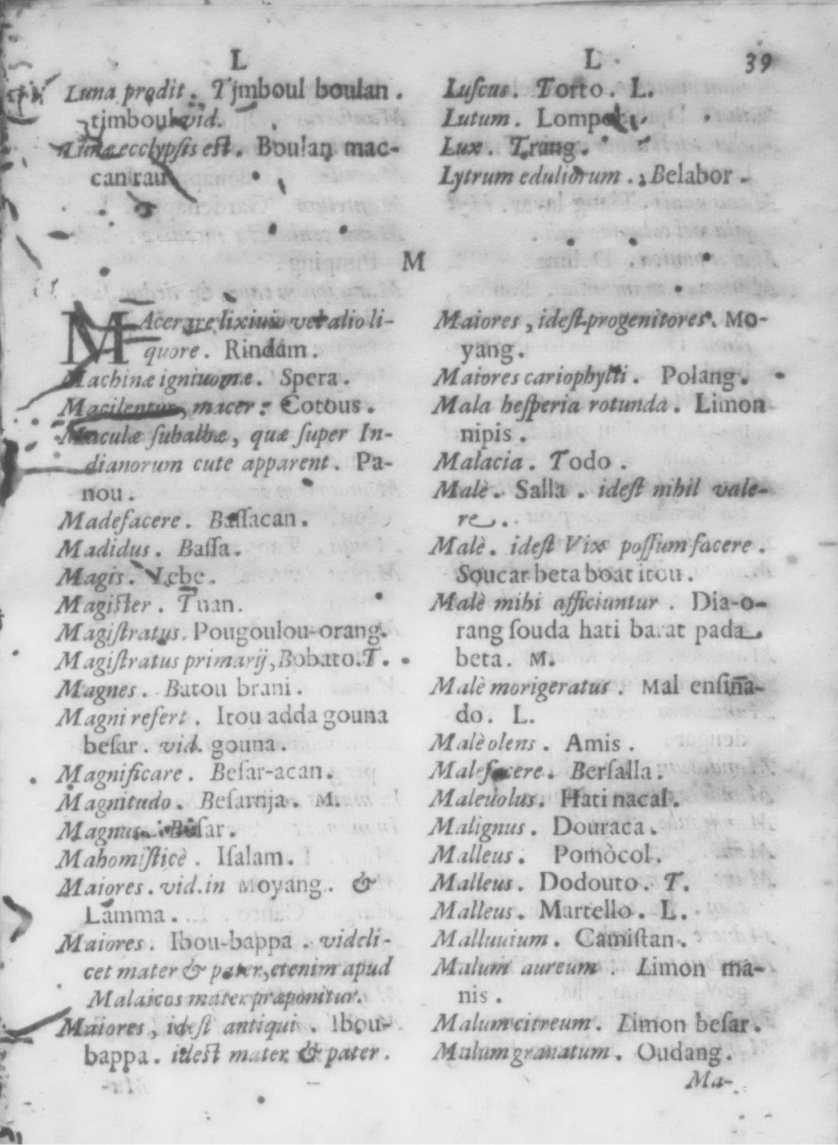 L L 39
Luna prodit. Tjmboul boulan.
tjmboul vid.
Luna ecclypsis est. Boulan mac-
can rau
Luſcus. Torto. L.
Lutum. Lompo
Lux. Trang.
Lytrum eduliorum. Belabor.
M
MAcerare lixiuio vel alio li-
quore. Rindam.
Machinæ igniuomæ. Spera.
Macilentus, macer. Corous.
Maculæ ſubalbæ, quæ ſuper In-
dianorum cute apparent. Pa-
nou.
Madefacere. Baſſacan.
Madidus. Baſſa.
Magis. Lebe.
Magiſter. Tuan.
Magiſtratus. Pougoulou-orang.
Magiſtratus primarij, Bobato. T.
Magnes. Batou brani.
Magni refert. Itou adda gouna
beſar. vid. gouna.
Magnificare. Beſar-acan.
Magnitudo. Beſarnja. M.
Magnus. Beſar.
Mahomiſticè. Iſalam.
Maiores. vid. in Moyang. &
Lamma.
Maiores. Ibou-bappa. videli-
cet mater & pater, etenim apud
Malaicos mater præponitur.
Maiores, ideſt antiqui. Ibou-
bappa. ideſt mater & pater.
Maiores, ideſt progenitores. Mo-
yang.
Maiores cariophylli. Polang.
Mala heſperia rotunda. Limon
nipis.
Malacia. Todo.
Malè. Salla. ideſt nihil vale-
re.
Malè. ideſt Vix poſſum facere.
Soucar beta boat itou.
Malè mihi afficiuntur. Dia-o-
rang ſouda hati barat pada
beta. M.
Malè morigeratus. Mal enſiña-
do. L.
Malè olens. Amis.
Malefacere. Berſalla.
Maleuolus. Hati nacal.
Malignus. Douraca.
Malleus. Pomòcol.
Malleus. Dodouto. T.
Malleus. Martello. L.
Malluuium. Camiſtan.
Malum aureum. Limon ma-
nis.
Malum citreum. Limon beſar.
Malum granatum. Oudang.
Ma-